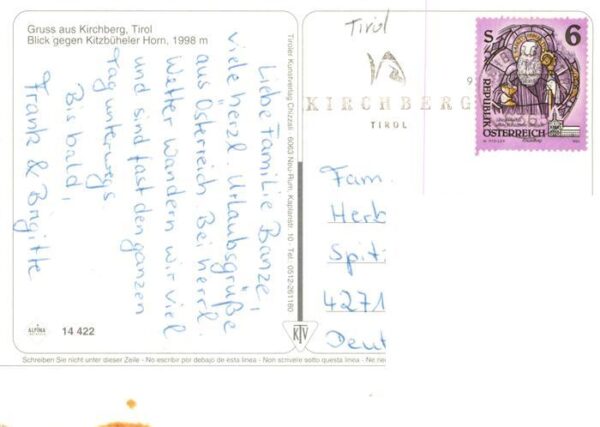 Gruss aus Kirchberg, Tirol
Blick gegen Kitzbüheler Horn, 1998 m
Liebe Familie Banze,
viele herzl. Urlaubsgrüße
aus Österreich. Bei herrl.
Wetter wandern wir viel
und sind fast den ganzen
Tag unterwegs.
Bis bald,
Frank & Brigitte
ALPINA
14 422
Tiroler Kunstverlag Chizzali · 6063 Neu-Rum, Kaplanstr. 10 · Tel. 0512-261180
KTV
Schreiben Sie nicht unter dieser Zeile - No escribir por debajo de esta linea - Non scrivere sotto questa linea - Ne
Tirol
KIRCHBERG
TIROL
9
S 6
REPUBLIK
ÖSTERREICH
Fam.
Herb
Spit
4271
Deut